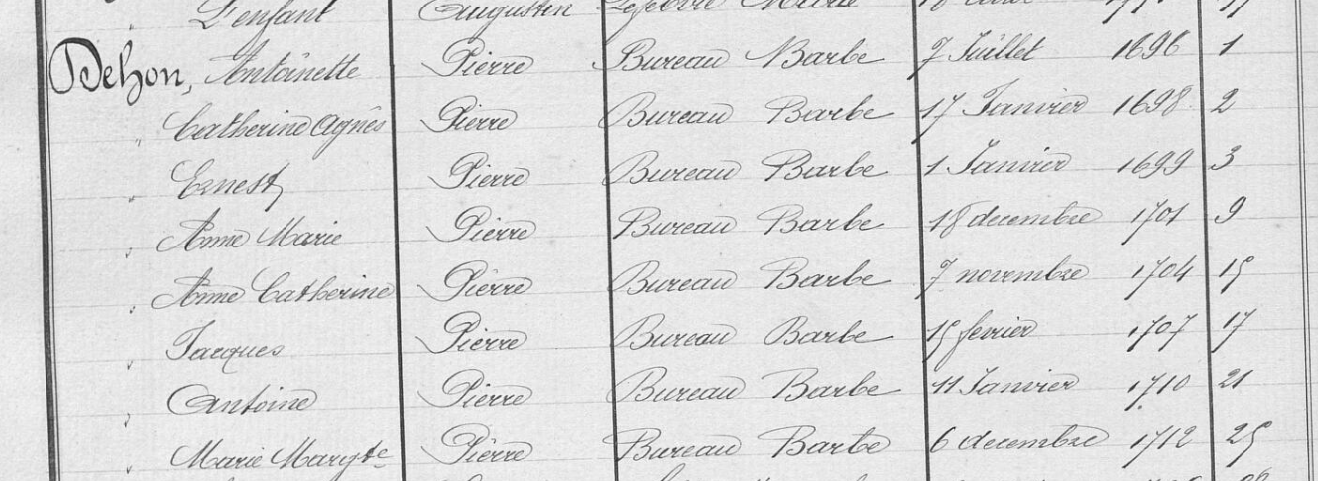 L'enfant Augustin Lefebvre Marie
Dehon, Antoinette Pierre Bureau Barbe 7 Juillet 1696 1
" Catherine Agnès Pierre Bureau Barbe 17 Janvier 1698 2
" Ernest Pierre Bureau Barbe 1 Janvier 1699 3
" Anne Marie Pierre Bureau Barbe 18 decembre 1701 9
" Anne Catherine Pierre Bureau Barbe 7 novembre 1704 15
" Jacques Pierre Bureau Barbe 15 fevrier 1707 17
" Antoine Pierre Bureau Barbe 11 Janvier 1710 21
" Marie Margte Pierre Bureau Barbe 6 decembre 1712 25